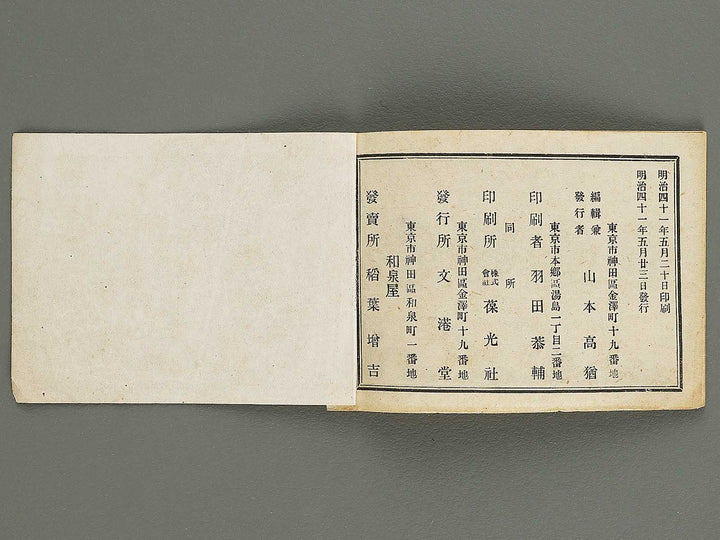 明治四十一年五月二十日印刷
明治四十一年五月廿三日發行
東京市神田區金澤町十九番地
編輯兼
發行者 山本高猶
東京市本鄕區湯島一丁目二番地
印刷者 羽田恭輔
同所
印刷所 株式會社 葆光社
東京市神田區金澤町十九番地
發行所 文港堂
東京市神田區和泉町一番地
和泉屋
發賣所 稻葉增吉